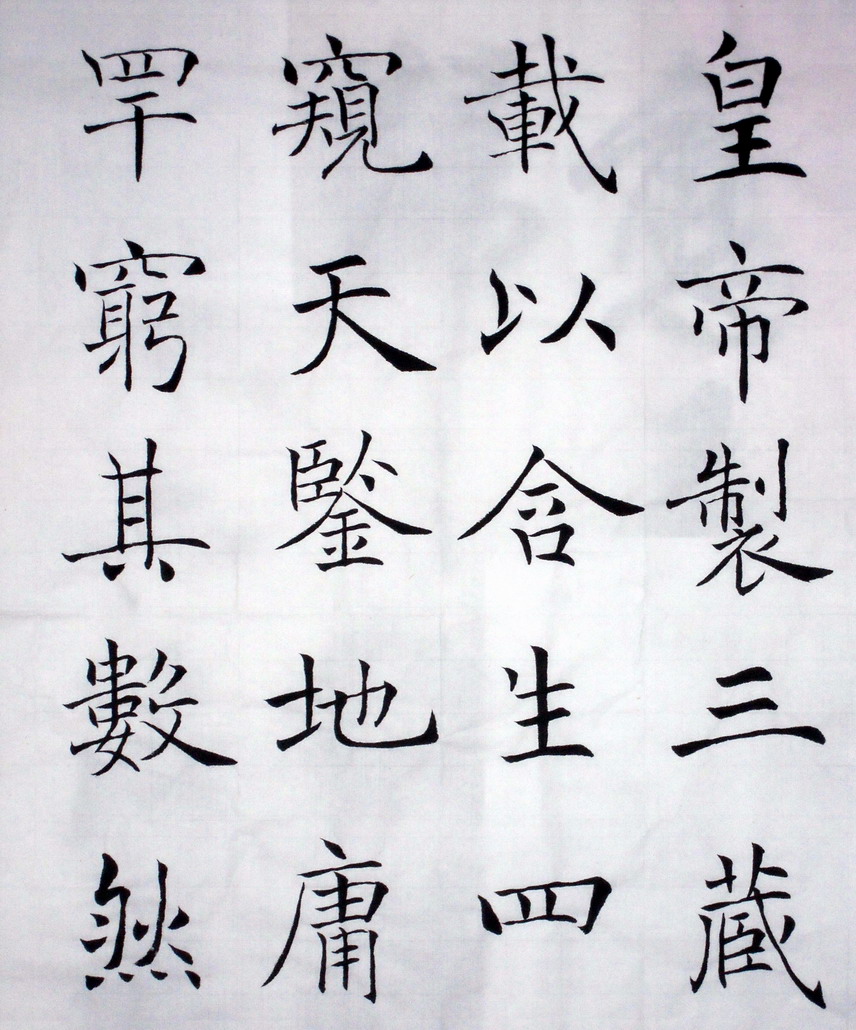 皇帝製三蔵
載以含生四
窺天鑒地庸
罕窮其數然